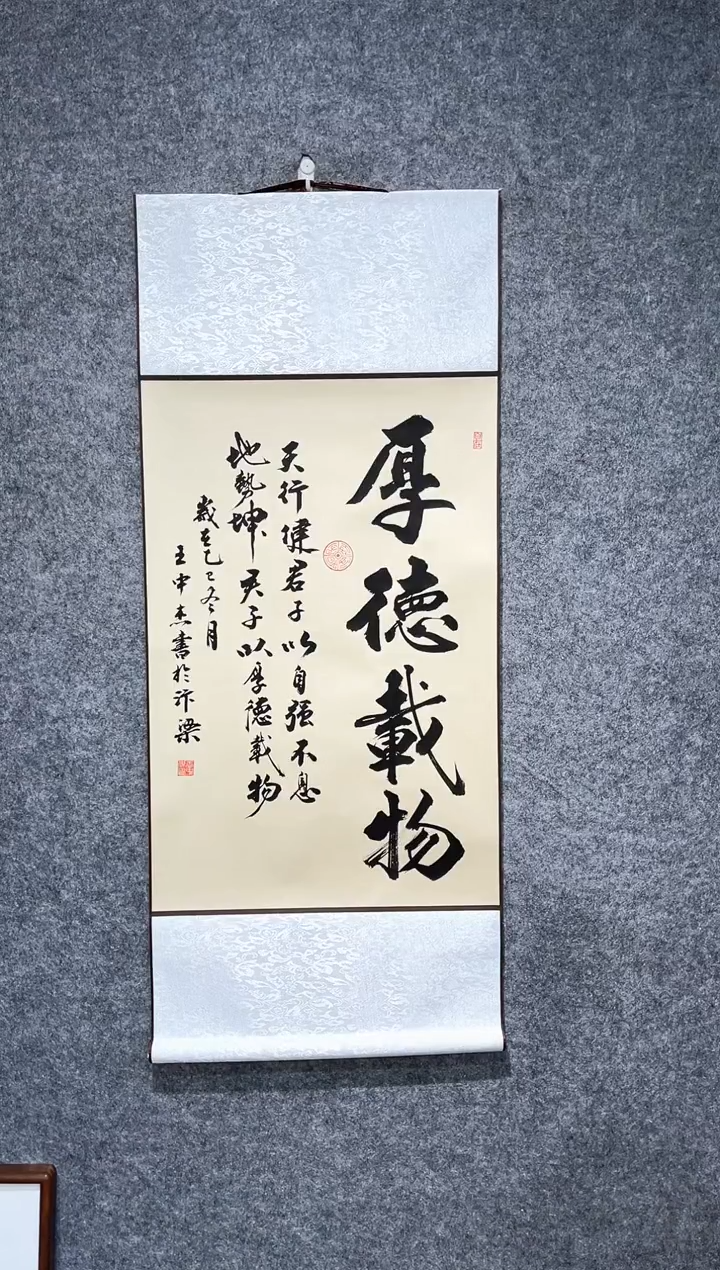 厚德載物
天行健君子以自强不息
地勢坤君子以厚德載物
歲在乙巳冬月
王中杰書於汴梁